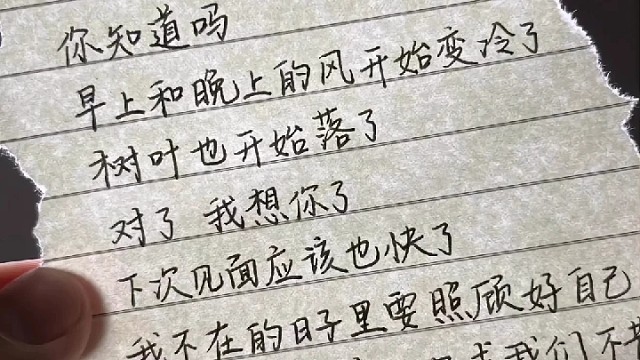 你知道吗
早上和晚上的风开始变冷了
树叶也开始落了
对了 我想你了
下次见面应该也快了
我不在的日子里要照顾好自己
我们不